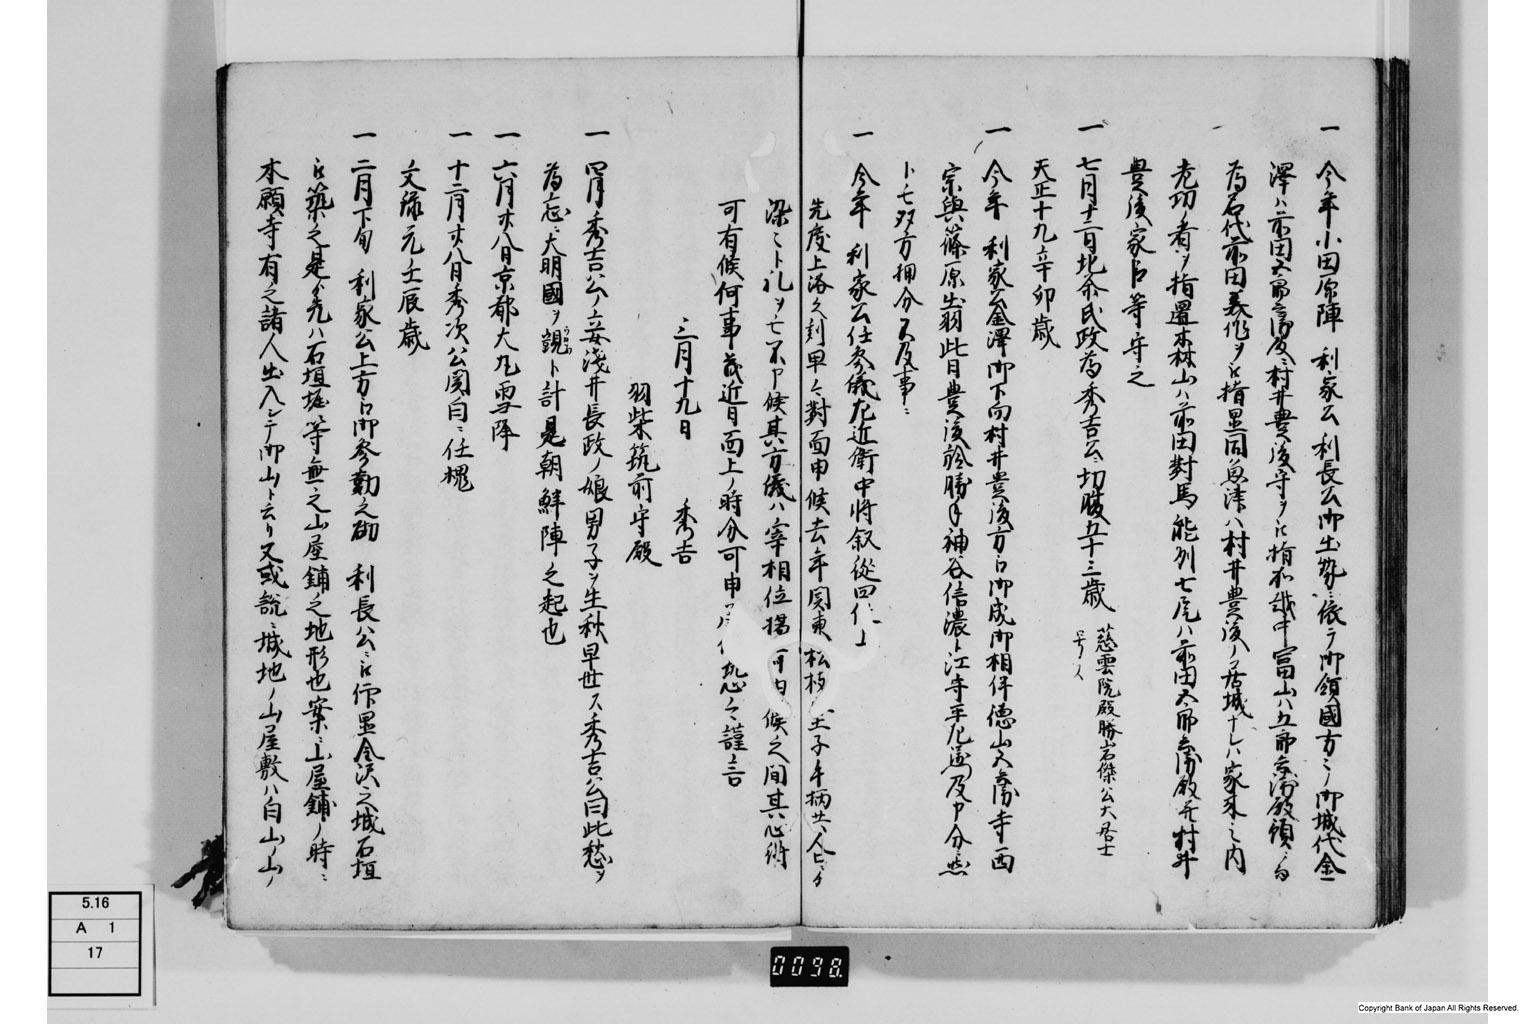 一 今年小田原陣 利家公 利長公御出勢ニ依テ御領國方〻ノ御城代金
澤ハ前田五郎兵衛殿ニ村井豊後守ヲ被指添越中富山ハ五郎兵衛殿領
為名代前田美作ヲ被指置同魚津ハ村井豊後ノ居城ナレハ家来之内
老功ノ者ヲ指置木森山ハ前田對馬能列七尾ハ前田五郎兵衛殿并村井
豊後家臣等守之
一 七月十二日北条氏政為秀吉公切腹五十三歳 慈雲院殿勝岩傑公大居士
号ス
天正十九辛卯歳
一 今年 利家公金澤御下向村井豊後方口御成御相伴徳山五兵衛寺西
宗與篠原出羽此日豊後於勝手神谷信濃ト江守平左衛門及口分ニ
トモ双方押分不及事ニ
一 今年 利家公任参儀左近衛中将叙従四位上
先度上洛之刻早々對面申候去年関東松枝
深々ト礼ヲモ不申候其方儀ハ宰相位
可有候何事茂近日面上ノ時分可申 恐々謹言
三月十九日 秀吉
羽柴筑前守殿
一 四月秀吉公ノ妾淺井長政ノ娘男子ヲ生秋早世ス秀吉公曰此愁ヲ
為忘ニ大明國ヲ覬ト計是朝鮮陣之起也
一 六月廿八日京都大九雪降
一 十二月廿八日秀次公関白ニ任槐
文禄元壬辰歳
一 二月下旬 利家公上方口御参勤之砌 利長公ニ被仰置金沢之城石垣
被築之是ゟ先ハ石垣堀等無之山屋鋪之地形也案ニ山屋鋪ノ時ニ
本願寺有之諸人出入シテ御山ト云リ又或説ニ城地ノ山屋敷ハ白山ノ山ノ
5.16
A 1
17
0098.
Copyright Bank of Japan All Rights Reserved.